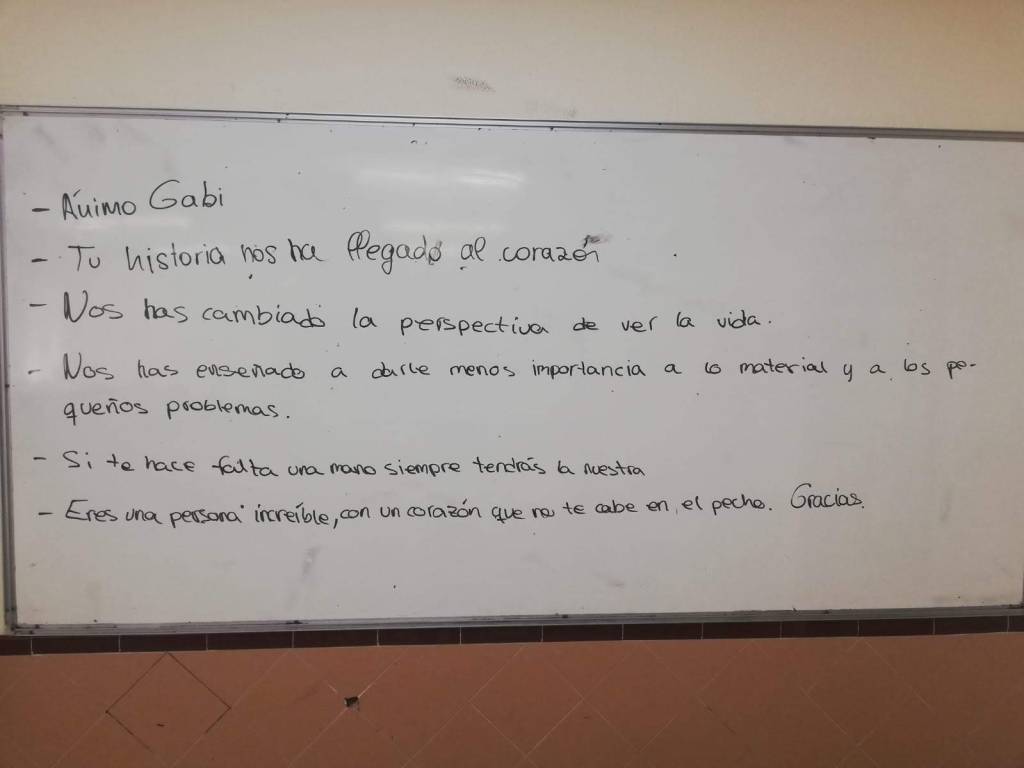 - Ánimo Gabi
- Tu historia nos ha llegado al corazón
- Nos has cambiado la perspectiva de ver la vida.
- Nos has enseñado a darle menos importancia a lo material y a los pe-
queños problemas.
- Si te hace falta una mano siempre tendrás la nuestra
- Eres una persona increíble, con un corazón que no te cabe en el pecho. Gracias.